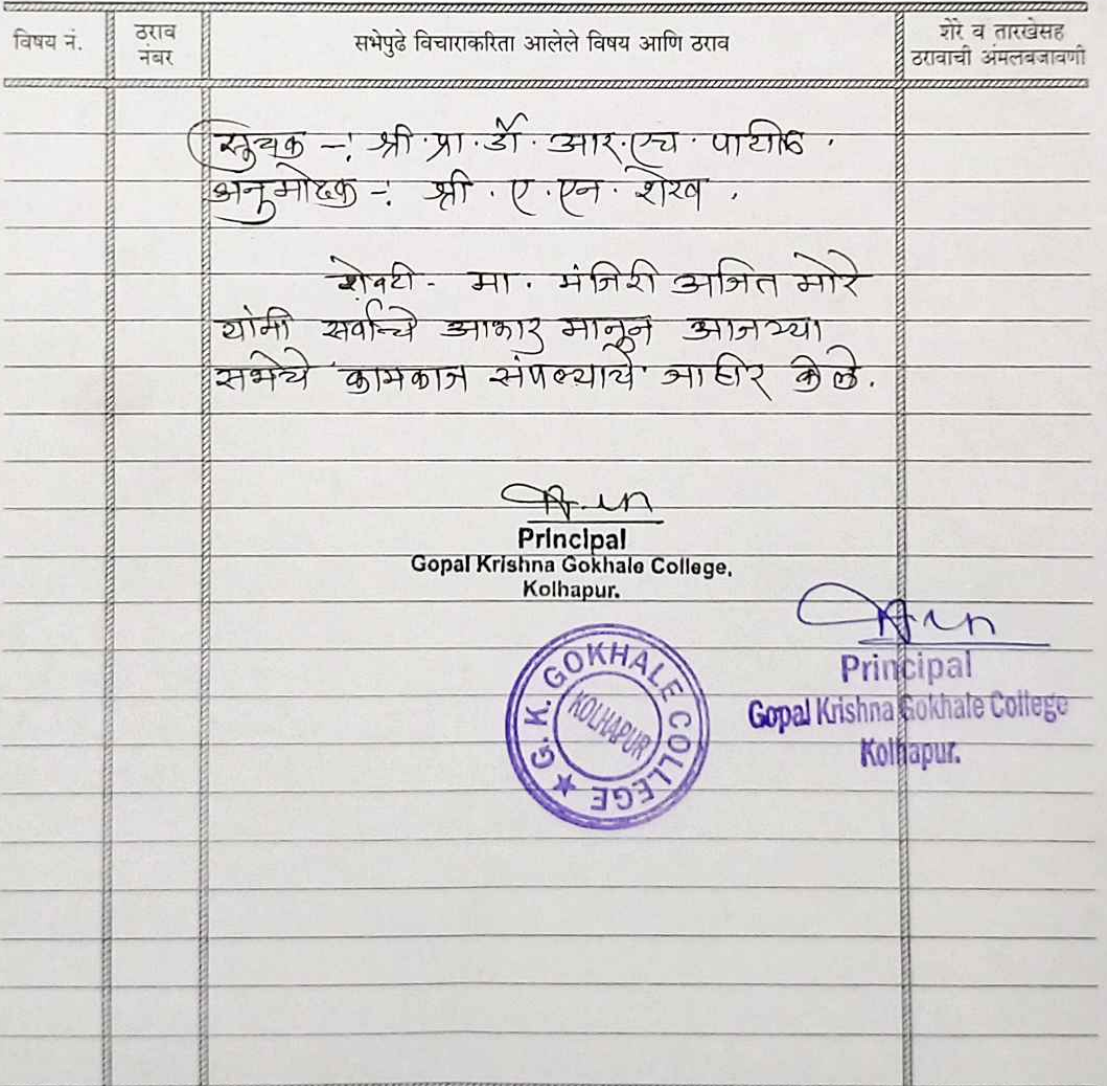 विषय नं.
ठराव
नंबर
सभेपुढे विचाराकरिता आलेले विषय आणि ठराव
शेरे व तारखेसह
ठरावाची अंमलबजावणी
सुचक -: श्री. प्रा. डॉ. आर. एच. पाटील.
अनुमोदक -: श्री. ए. एन. शेख.
शेवटी - मा. मंजिरी अजित मोरे
यांनी सर्वांचे आभार मानून आजच्या
सभेचे कामकाज संपल्याचे जाहीर केले.
Principal
Gopal Krishna Gokhale College,
Kolhapur.
G. K. GOKHALE COLLEGE
KOLHAPUR
Principal
Gopal Krishna Gokhale College
Kolhapur.